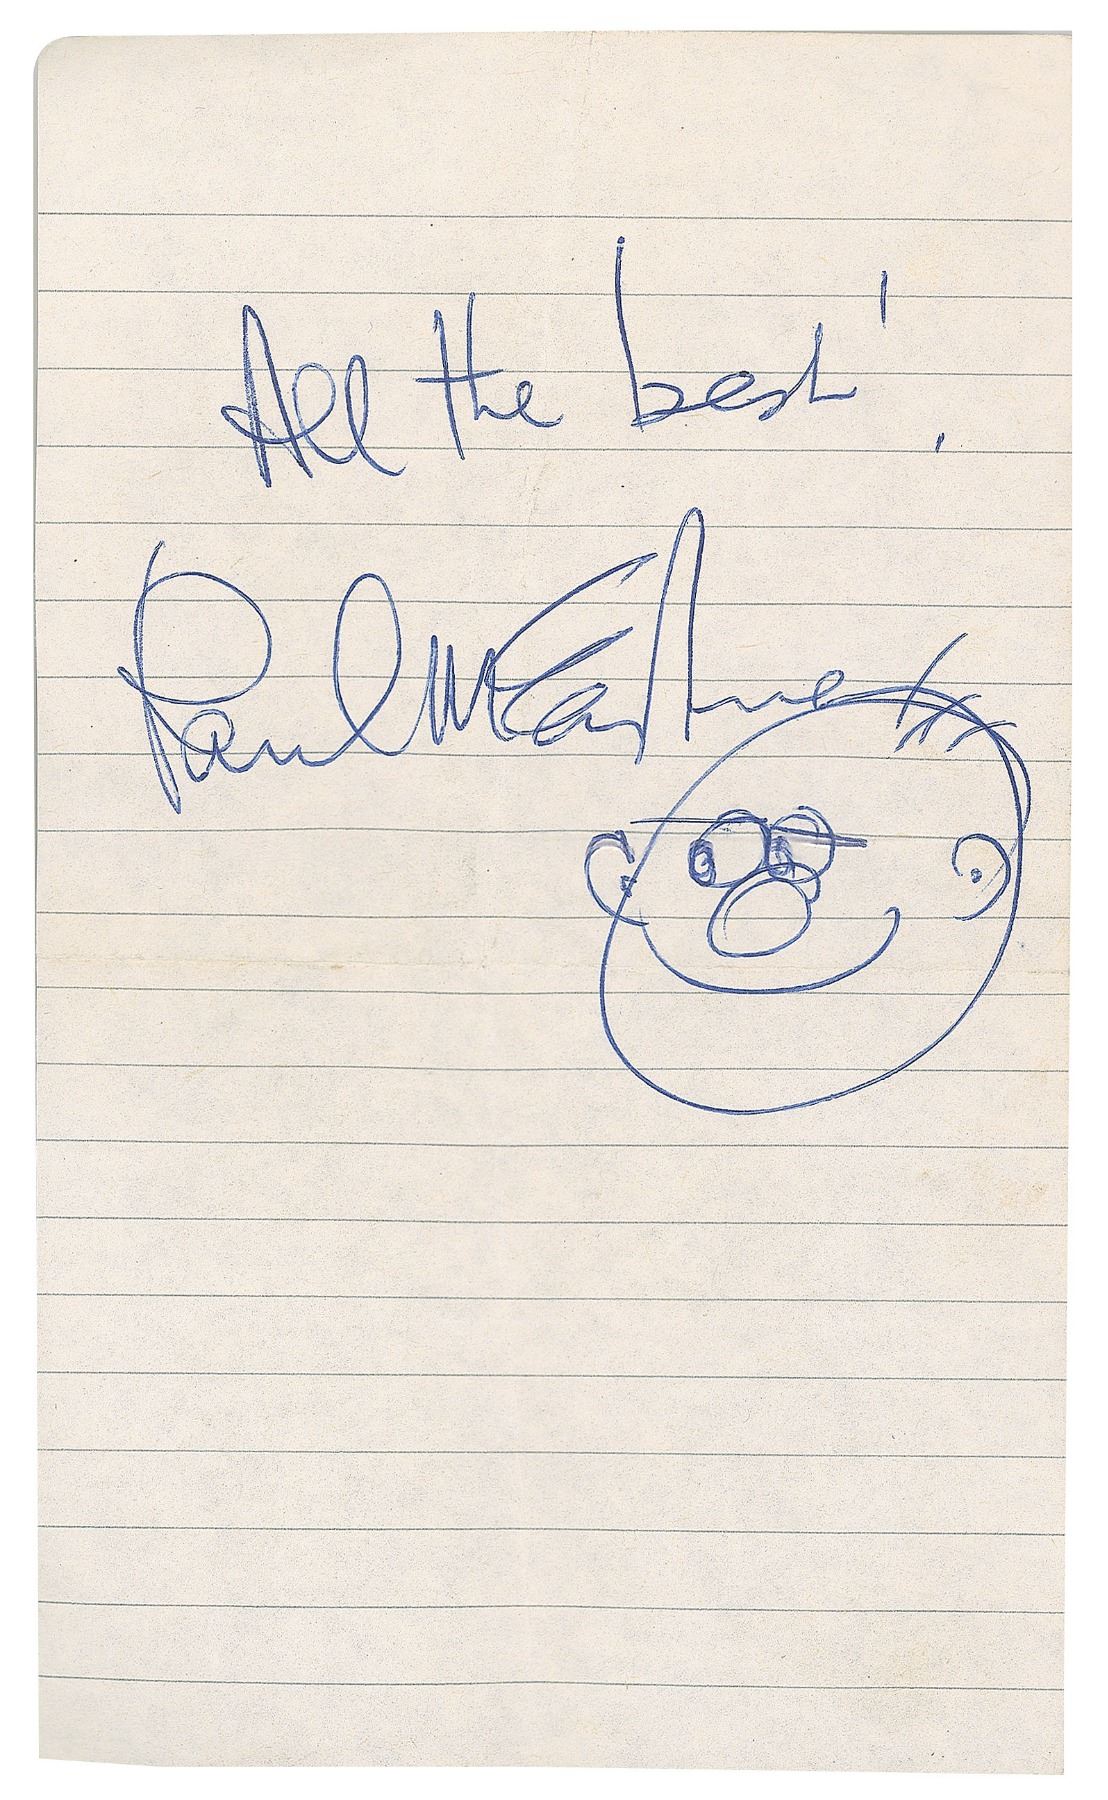 All the best!
Paul McCartney